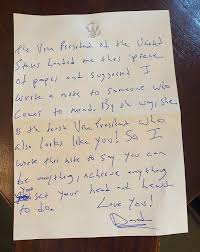 The Vice President of the United
States handed me this piece
of paper and suggested I
write a note to someone who
comes to mind. By the way, she
is the first Vice President who
also looks like you! So I
wrote this note to say you can
be anything, achieve anything
you set your head and heart
to do.
Love You!
David